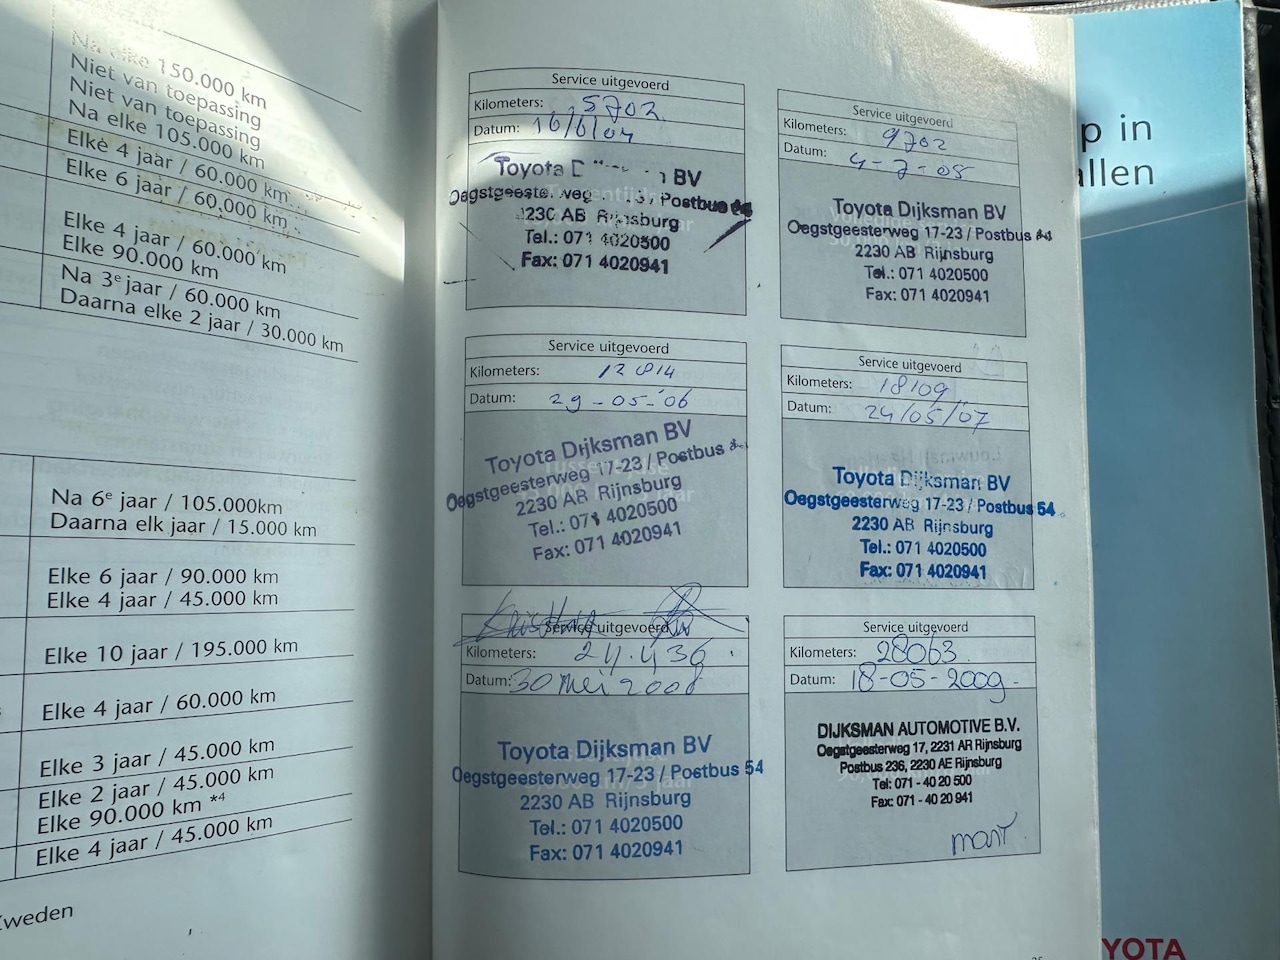 Na elke 150.000 km
Niet van toepassing
Niet van toepassing
Na elke 105.000 km
Elke 4 jaar / 60.000 km
Elke 6 jaar / 60.000 km
Elke 4 jaar / 60.000 km
Elke 90.000 km
Na 3e jaar / 60.000 km
Daarna elke 2 jaar / 30.000 km
Na 6e jaar / 105.000km
Daarna elk jaar / 15.000 km
Elke 6 jaar / 90.000 km
Elke 4 jaar / 45.000 km
Elke 10 jaar / 195.000 km
Elke 4 jaar / 60.000 km
Elke 3 jaar / 45.000 km
Elke 2 jaar / 45.000 km
Elke 90.000 km *4
Elke 4 jaar / 45.000 km
Zweden
Service uitgevoerd
Kilometers: 5702
Datum: 16/6/04
Toyota BV
Oegstgeesterweg / Postbus
2230 AB Rijnsburg
Tel.: 071 4020500
Fax: 071 4020941
Service uitgevoerd
Kilometers: 9702
Datum: 4-7-05
Toyota Dijksman BV
Oegstgeesterweg 17-23 / Postbus
2230 AB Rijnsburg
Tel.: 071 4020500
Fax: 071 4020941
Service uitgevoerd
Kilometers: 12814
Datum: 29-05-'06
Toyota Dijksman BV
Oegstgeesterweg 17-23 / Postbus
2230 AB Rijnsburg
Tel.: 071 4020500
Fax: 071 4020941
Service uitgevoerd
Kilometers: 18109
Datum: 24/05/07
Toyota Dijksman BV
Oegstgeesterweg 17-23 / Postbus 54
2230 AB Rijnsburg
Tel.: 071 4020500
Fax: 071 4020941
Service uitgevoerd
Kilometers: 24.436
Datum: 30 mei 2008
Toyota Dijksman BV
Oegstgeesterweg 17-23 / Postbus 54
2230 AB Rijnsburg
Tel.: 071 4020500
Fax: 071 4020941
Service uitgevoerd
Kilometers: 28063
Datum: 18-05-2009-
DIJKSMAN AUTOMOTIVE B.V.
Oegstgeesterweg 17, 2231 AR Rijnsburg
Postbus 236, 2230 AE Rijnsburg
Tel: 071 - 40 20 500
Fax: 071 - 40 20 941
p in
allen
YOTA